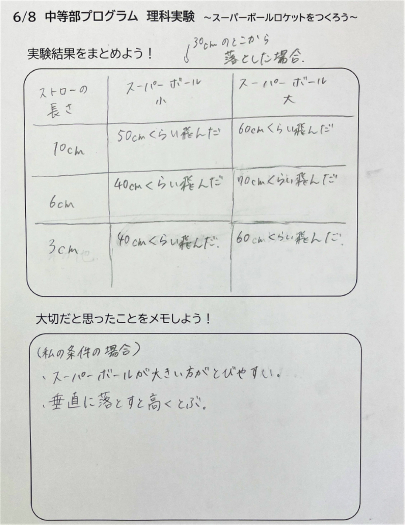 6/8 中等部プログラム 理科実験 ～スーパーボールロケットをつくろう～
実験結果をまとめよう！
30cmのとこから
落とした場合.
ストローの
長さ
スーパーボール
小
スーパーボール
大
10cm
50cmくらい飛んだ
60cmくらい飛んだ
6cm
40cmくらい飛んだ
70cmくらい飛んだ
3cm
40cmくらい飛んだ.
60cmくらい飛んだ.
大切だと思ったことをメモしよう！
(私の条件の場合)
・スーパーボールが大きい方がとびやすい。
・垂直に落とすと高くとぶ。